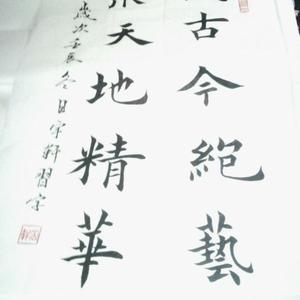 古今絕藝
天地精華
歲次壬辰冬月宇軒習字